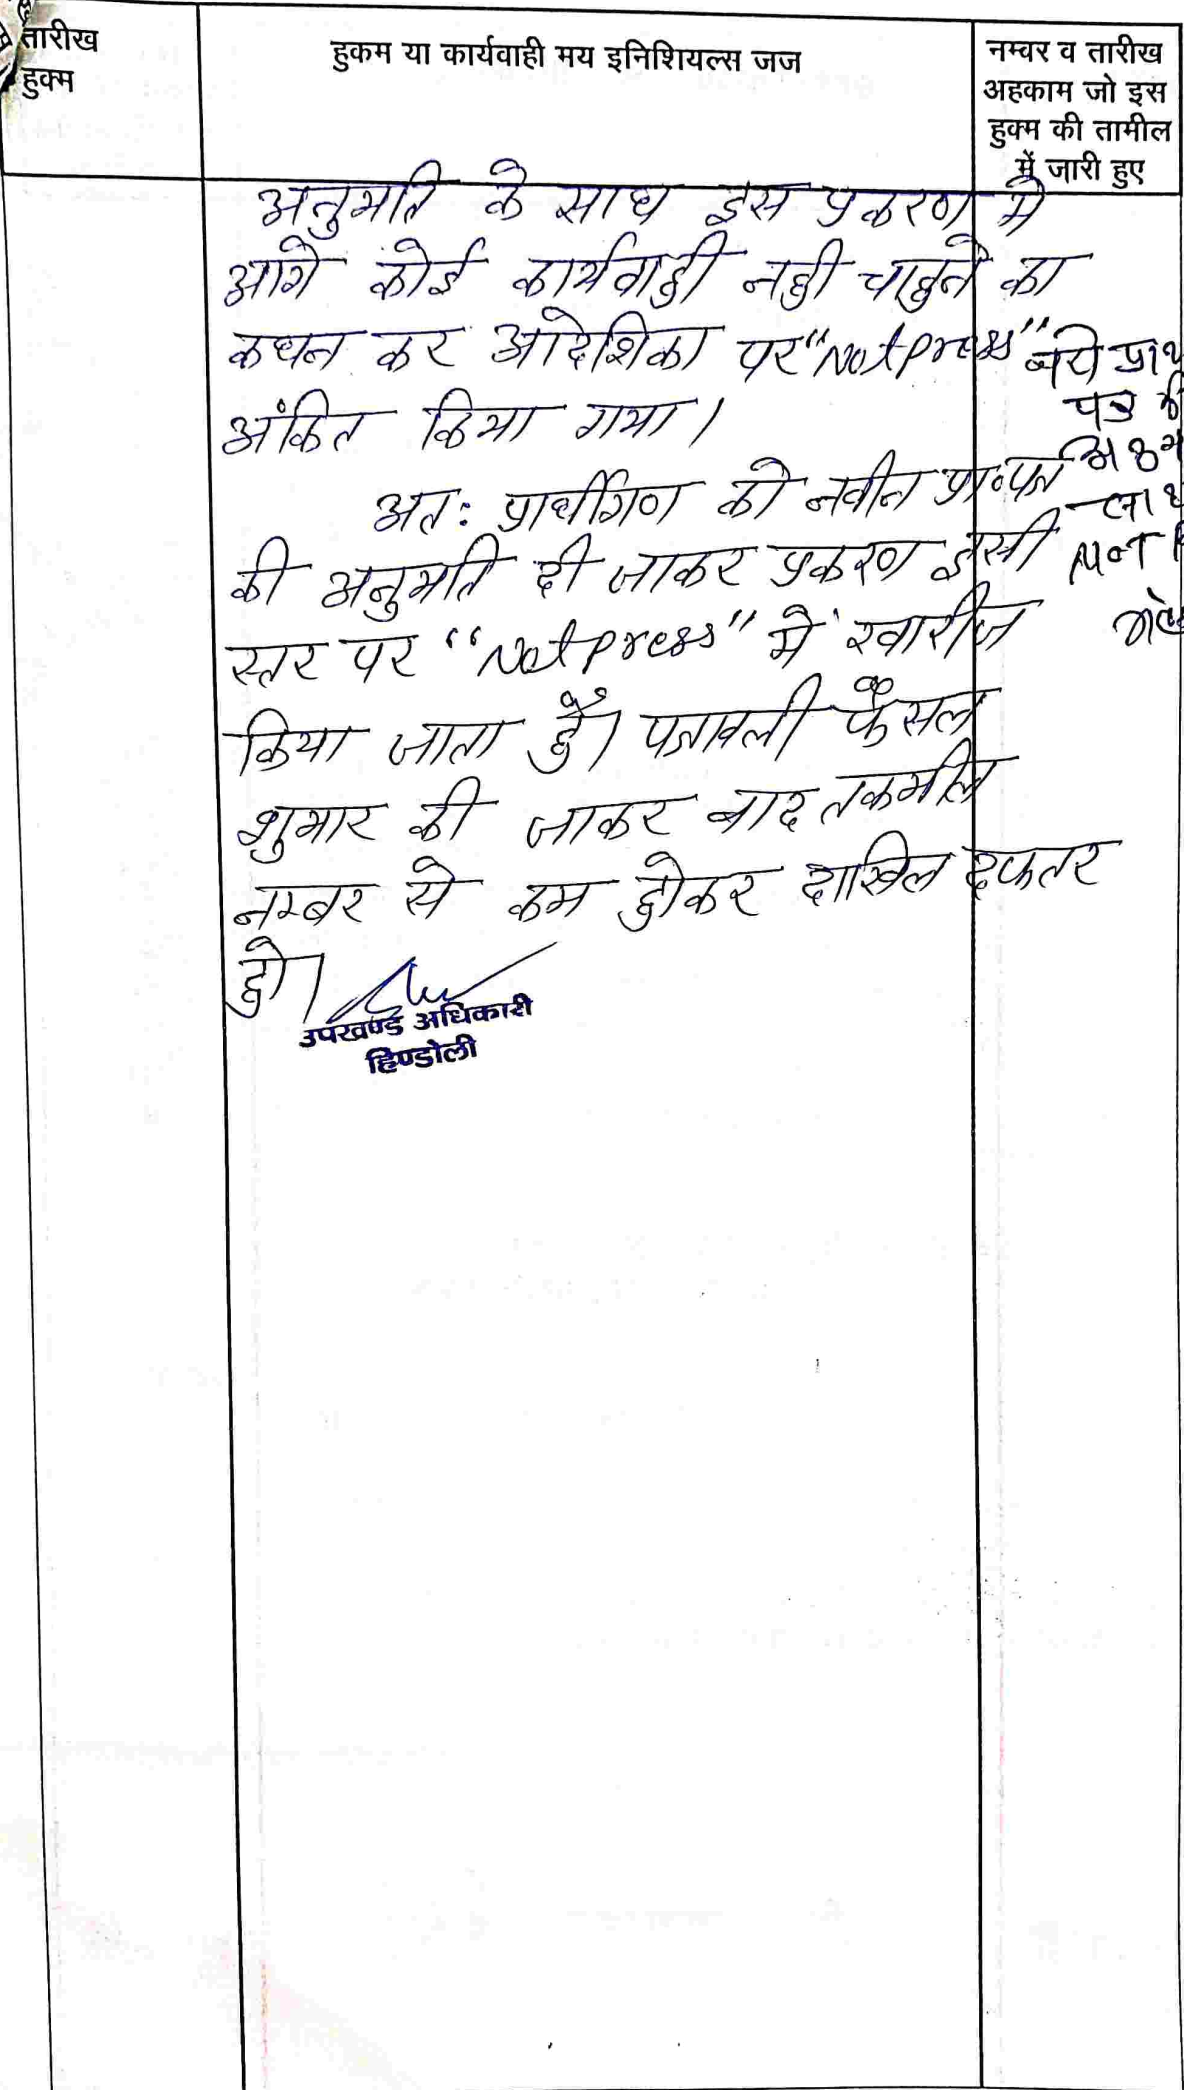 तारीख
हुक्म
हुकम या कार्यवाही मय इनिशियल्स जज
नम्वर व तारीख
अहकाम जो इस
हुक्म की तामील
में जारी हुए
अनुमति के साथ इस प्रकरण में
आगे कोई कार्यवाही नही चाहने का
कथन कर आदेशिका पर "Not press"
अंकित किया गया।
अत: प्रार्थीगण को नवीन प्रा०पत्र
की अनुमति दी जाकर प्रकरण इसी
स्तर पर "Not press" में खारीज
किया जाता है। पत्रावली फैसल
शुमार की जाकर बाद तकमील
नम्बर से कम होकर दाखिल दफतर
हो।
उपखण्ड अधिकारी
हिण्डोली
नये
पत्र
Not